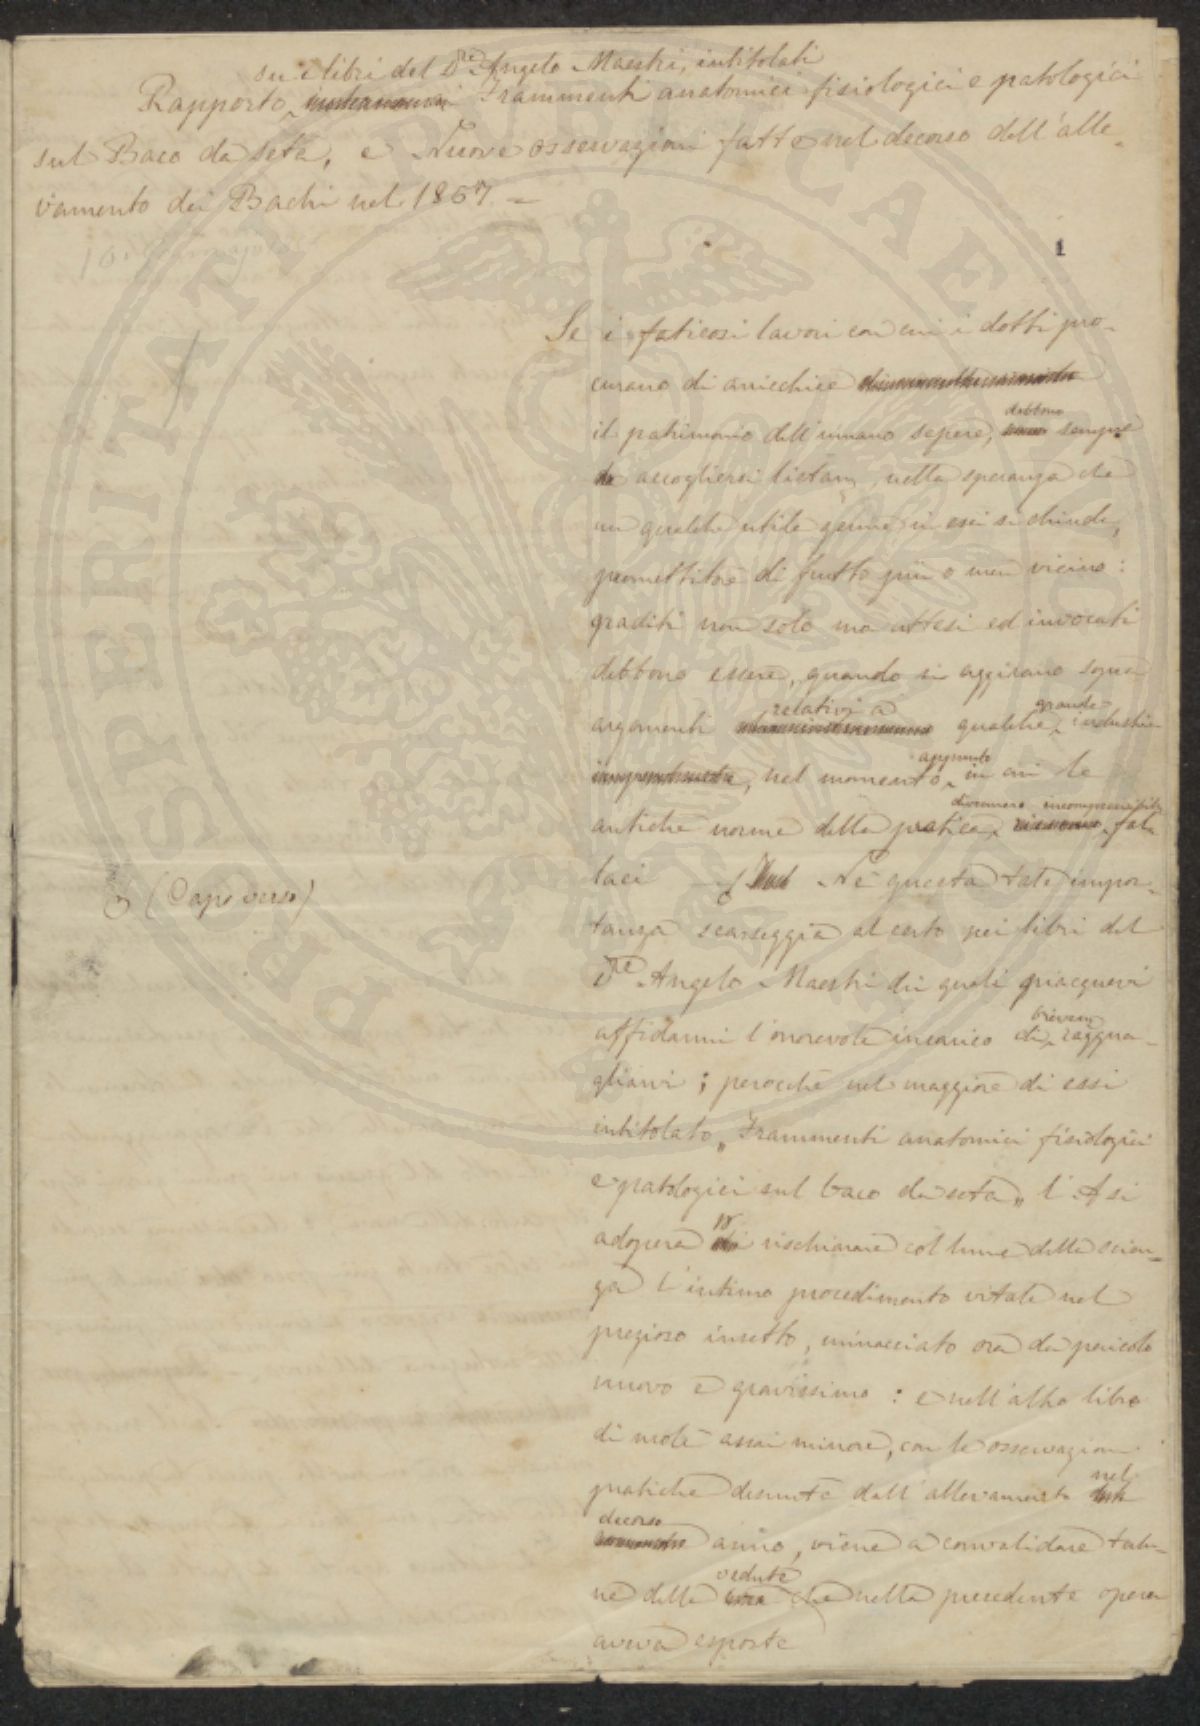 su i libri del D.re Angelo Maestri, intitolati
Rapporto Frammenti anatomici fisiologici e patologici
sul Baco da seta, e Nuove osservazioni fatte nel decorso dell'alle-
vamento dei Bachi nel 1857. =
1
Se i faticosi lavori con cui i dotti pro-
curano di arricchire
il patrimonio dell'umano sapere, debbono sempre
accogliersi lietam. nella speranza che
un qualche utile germe in essi si chiuda,
promettitore di frutto più o men vicino:
graditi non solo ma attesi ed invocati
debbono essere, quando si aggirano sopra
argomenti relativi a qualche grande industria
, nel momento appunto in cui le
antiche norme della pratica divennero fal-
laci Nè questa tale impor-
(Capo verso)
tanza scarseggia al certo pei libri del
D.re Angelo Maestri dei quali piacquevi
affidarmi l'onorevole incarico di brevem. raggua-
gliarvi; perocchè nel maggiore di essi
intitolato „Frammenti anatomici fisiologici
e patologici sul baco da seta„ l'A si
adopera a rischiarare col lume della scien-
za l'intimo procedimento vitale nel
prezioso insetto, minacciato ora da pericolo
nuovo e gravissimo: e nell'altro libro
di mole assai minore, con le osservazioni
pratiche desunte dall'allevamento nel
decorso anno, viene a convalidare talu-
ne delle vedute che nella precedente opera
aveva esposte
PROSPERITATI PUBLICAE